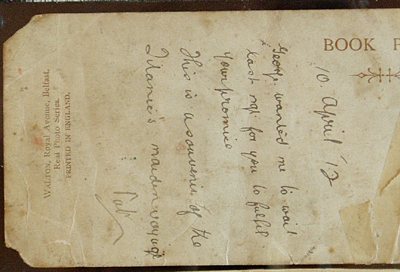 BOOK P
10. April '12
George wanted me to wait
last for you to fulfil
Your promise
This is a souvenir of the
Titanic's maiden voyage
WALTON, Royal Avenue, Belfast.
Real Photo Series.
PRINTED IN ENGLAND.